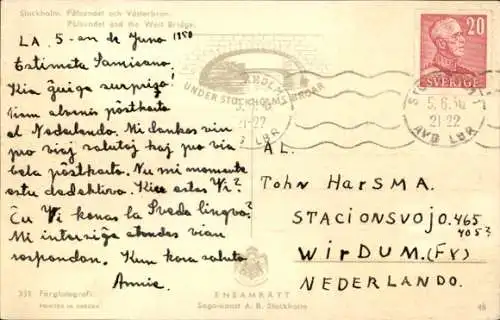 Stockholm. Pålsundet och Västerbron.
Pålsundet and the West Bridge.
LA 5-an de Juno 1950
Estimata Samicano.
Kia ĝuiga surprizo!
tiam alvenis pōstkarto
el Nederlando. Mi dankas vin
pro viaj salutoj kaj pro via
bela pōstkarto. Nu mi momente
estu dedektivo. Kiee estas Vi?
Ĉu Vi konas la Sveda lingvo?
Mi intersiĝe atendas vian
respondon. Kun kora saluto
Annie.
STOCKHOLM
UNDER STOCKHOLMS BROAR
5. 6. 50
21-22
AVD LBR
20
SVERIGE
AL.
John HarSMA.
STACIONSVOJO. 465
4053
WirDUM. (Fr)
NEDERLANDO.
331 Färgfotografi.
PRINTED IN SWEDEN
ENSAMRÄTT
Sago-konst A. B. Stockholm
48